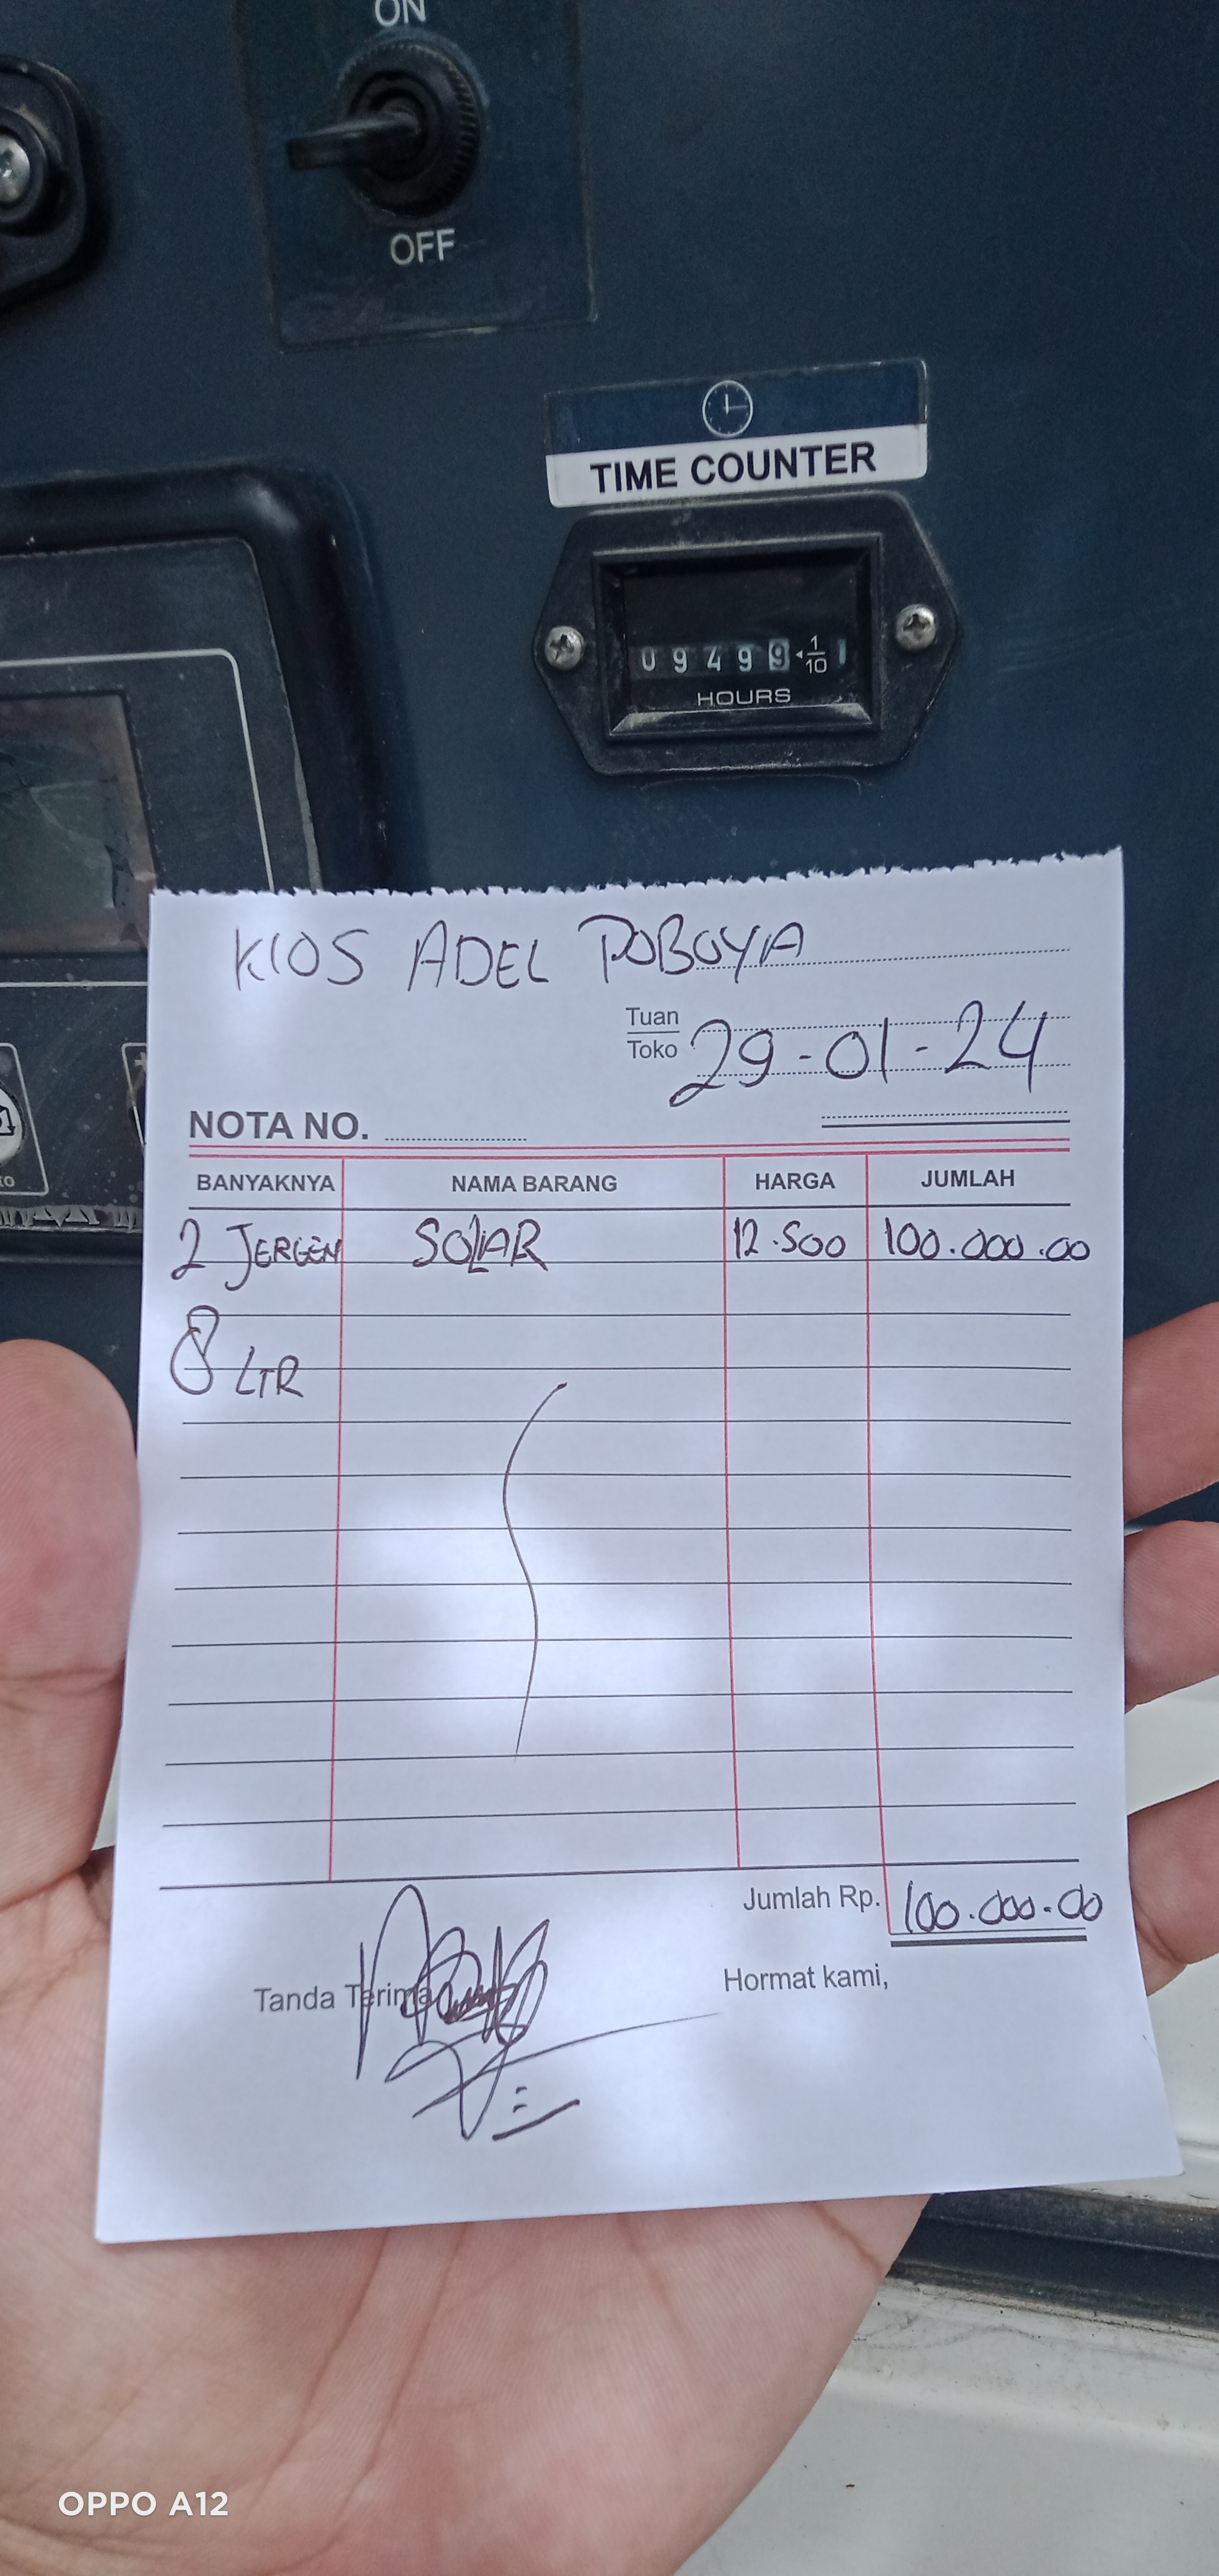 ON
OFF
TIME COUNTER
0 9 4 9 9 1/10
HOURS
KIOS ADEL POBOYA
Tuan
Toko
29-01-24
NOTA NO.
BANYAKNYA NAMA BARANG HARGA JUMLAH
2 JERGEN SOLAR 12.500 100.000.00
8 LTR
Jumlah Rp. 100.000.00
Tanda Terima
Hormat kami,
OPPO A12